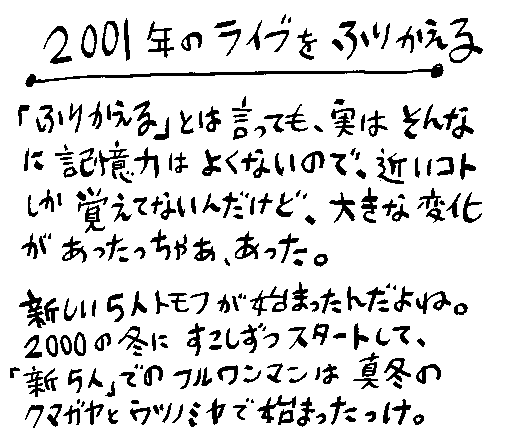 2001年のライブをふりかえる
「ふりかえる」とは言っても、実はそんな
に記憶力はよくないので、近いコト
しか覚えてないんだけど、大きな変化
があったっちゃぁ、あった。
新しい5人トモフが始まったんだよね。
2000の冬にすこしずつスタートして、
「新5人」でのフルワンマンは真冬の
クマガヤとウツノミヤで始まったっけ。